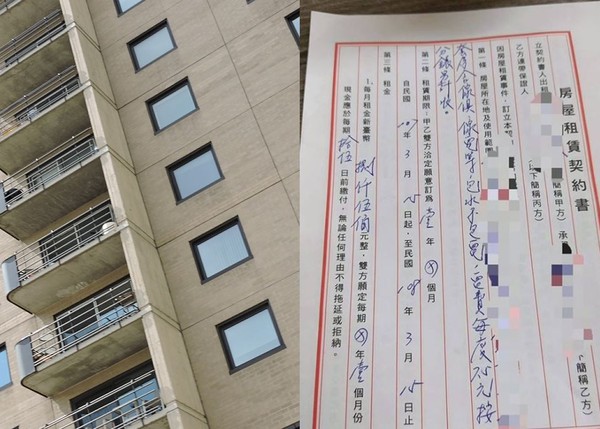 房屋租賃契約書
立契約書人出租
簡稱甲方）承
簡稱乙方）
乙方連帶保證人
下簡稱丙方）
因房屋租賃事件，訂立本契
第一條 房屋所在地及使用範圍
電費每度 元按
分錶另計收。
第二條 租賃期限：甲乙雙方洽定願意訂為壹年 個月
自民國 年3月 日起，至民國 年3月 日止
第三條 租金
1、每月租金新臺幣 捌仟伍佰元整，雙方願定每期 年壹個月份
現金應於每期拾伍日前繳付，無論任何理由不得拖延或拒納。